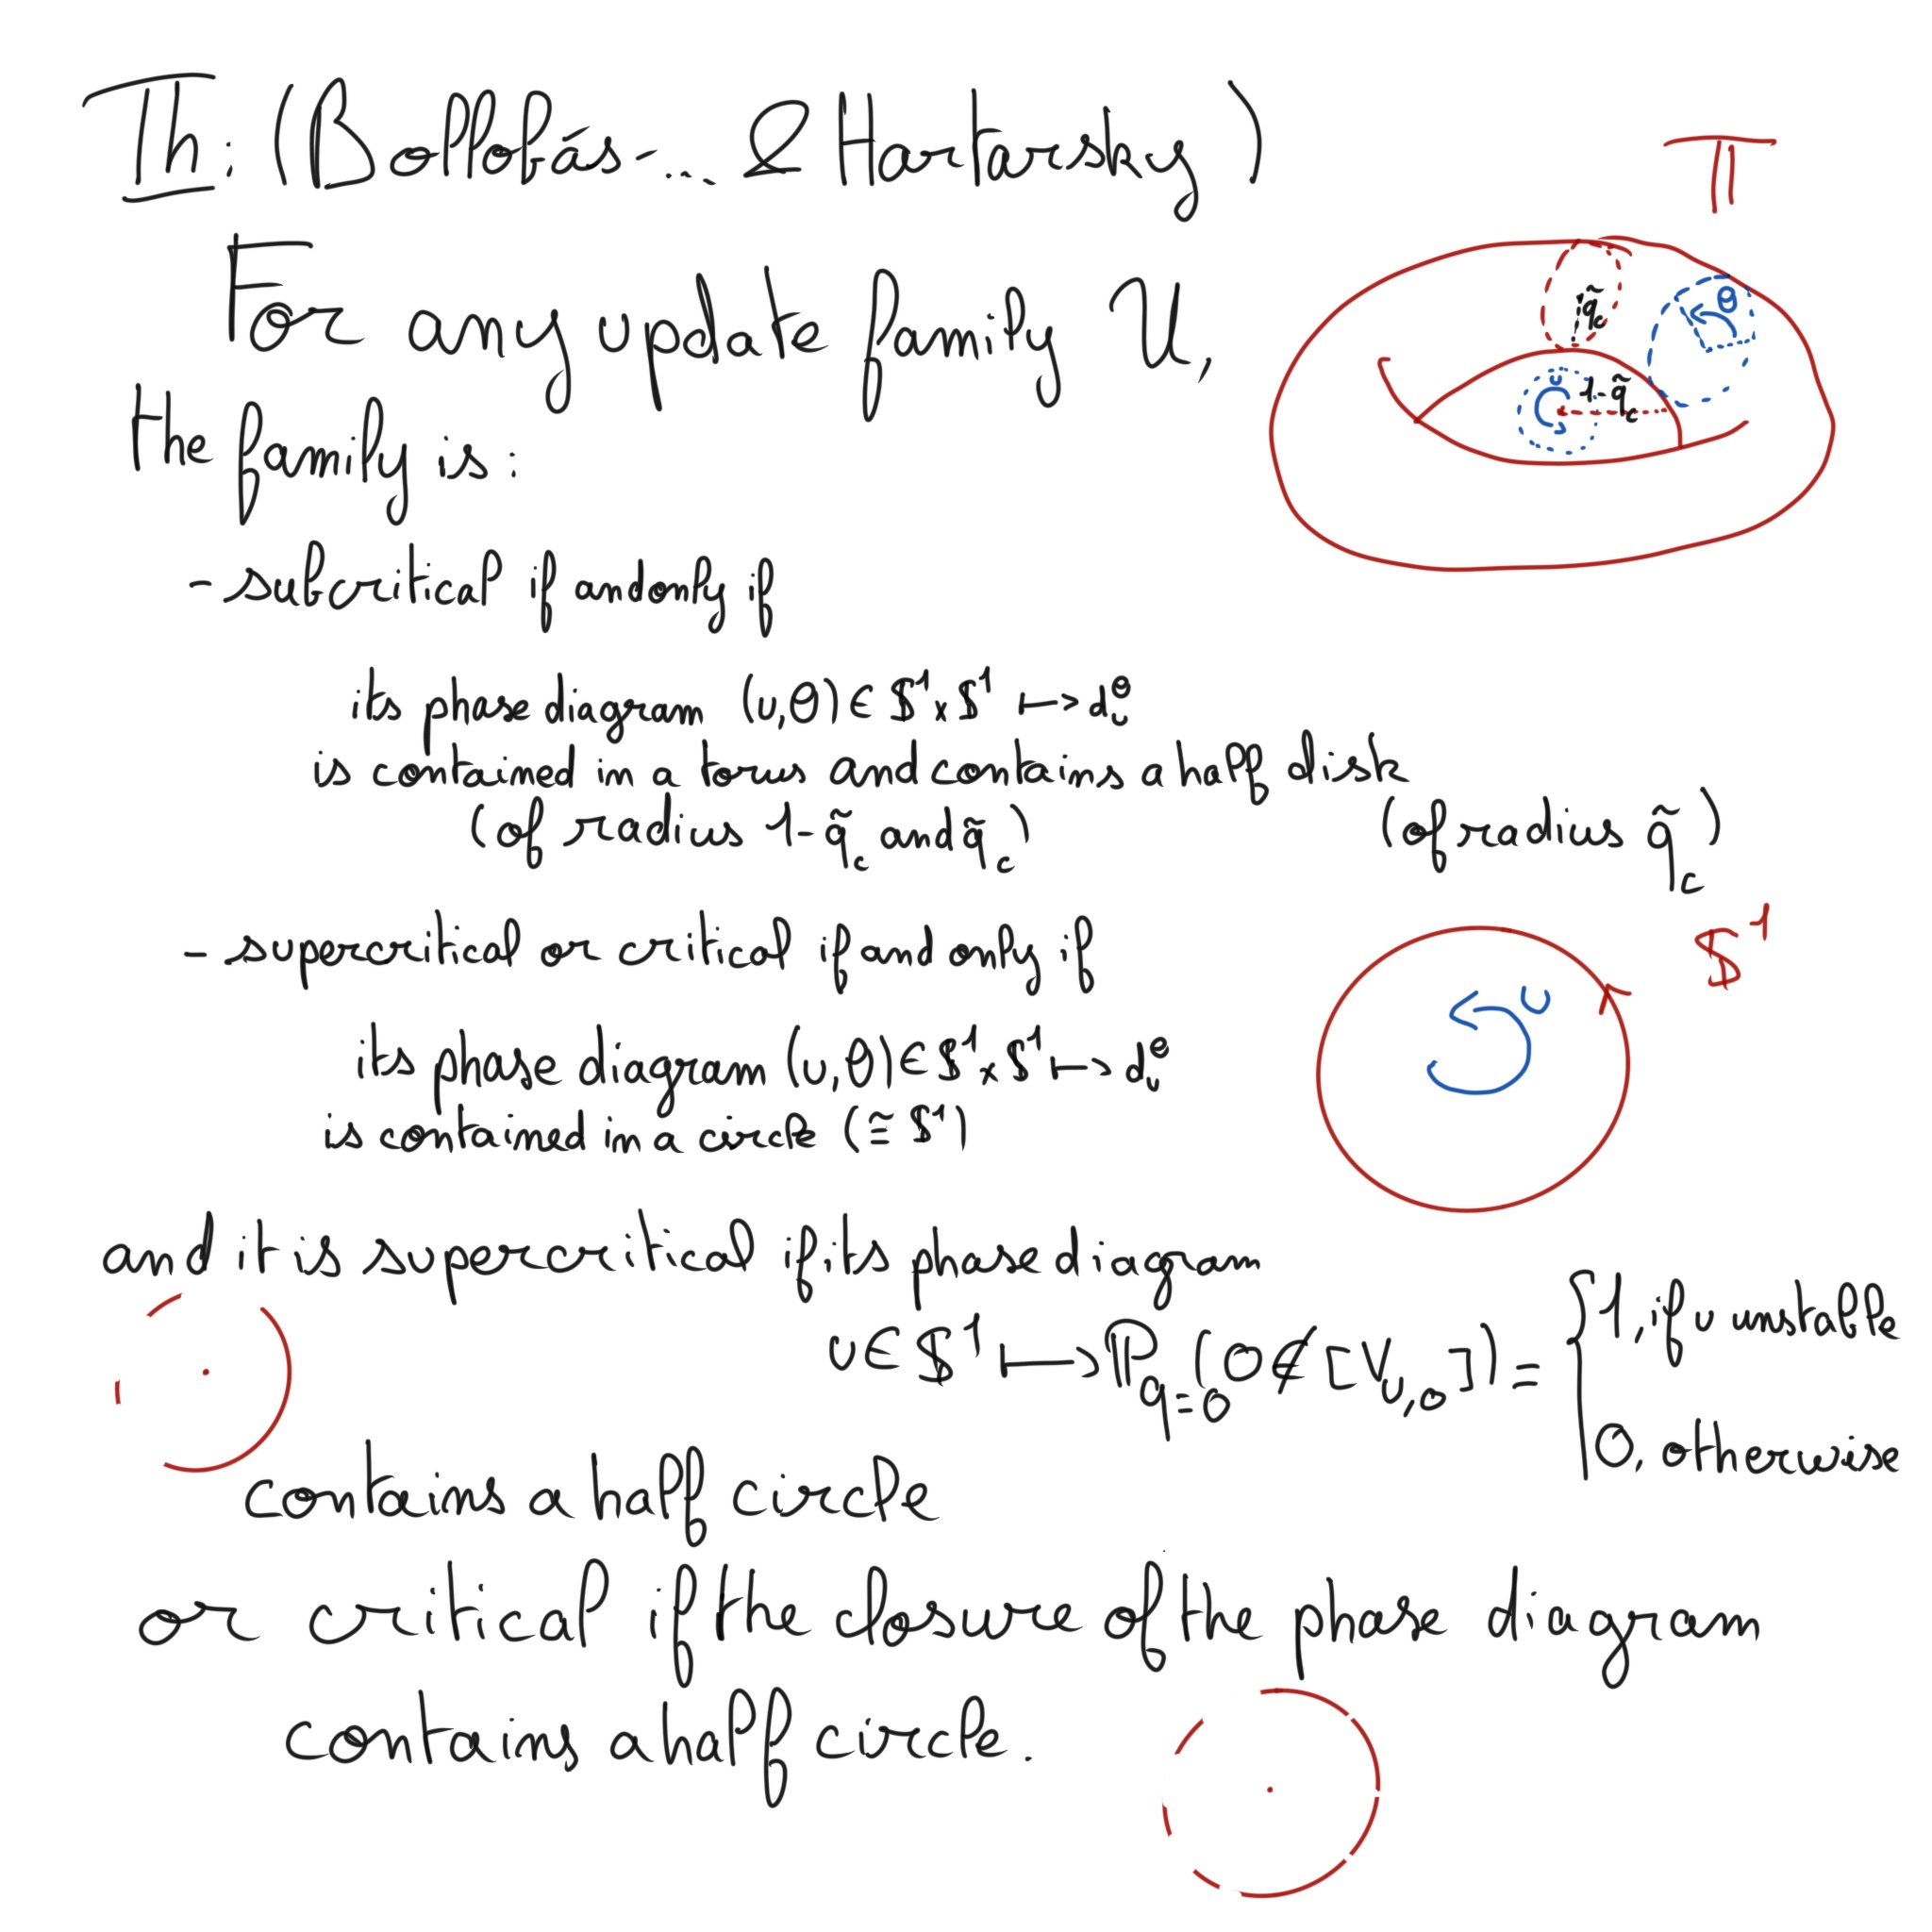 Th: (Bollobás-... & Hartarsky)
For any update family U,
the family is:
- subcritical if and only if
its phase diagram (u,θ) ∈ $¹ x $¹ ↦ d_u^θ
is contained in a torus and contains a half disk
(of radius 1-q̃_c and q̃_c) (of radius q̃_c)
- supercritical or critical if and only if
its phase diagram (u,θ) ∈ $¹ x $¹ ↦ d_u^θ
is contained in a circle (≅ $¹)
and it is supercritical if its phase diagram
u ∈ $¹ ↦ ℙ_{q=0}(0 ∉ [V_{u,0}]) = { 1, if u unstable
0, otherwise
contains a half circle
or critical if the closure of the phase diagram
contains a half circle.
T
q̃_c
θ
u
1-q̃_c
$¹
u